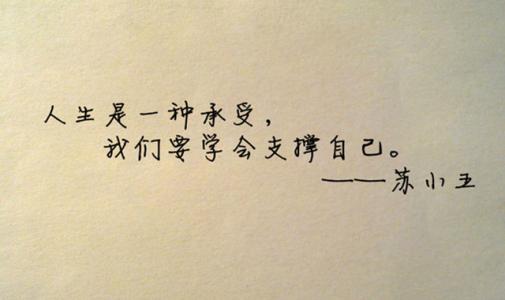 人生是一种承受，
我们要学会支撑自己。
——苏小王